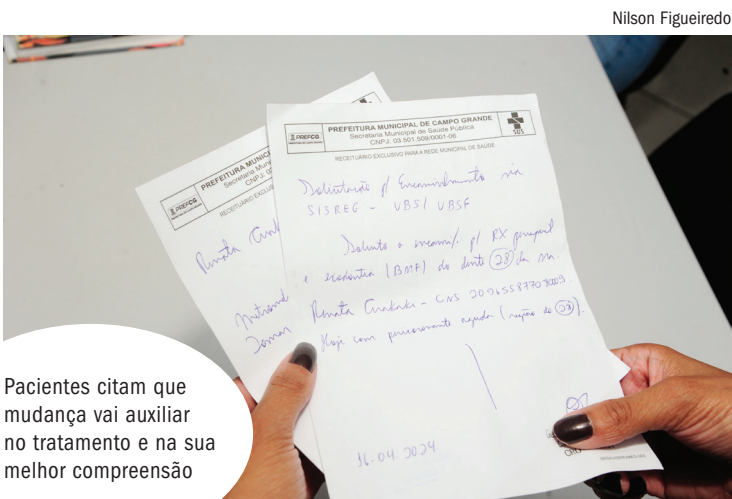 Nilson Figueiredo
PREFCG
PREFEITURA MUNICIPAL DE CAMPO GRANDE
Secretaria Municipal de Saúde Pública
CNPJ: 03.501.509/0001-06
SUS
RECEITUÁRIO EXCLUSIVO PARA A REDE MUNICIPAL DE SAÚDE
Solicitação p/ Encaminhamento via
SISREG - UBS/ UBSF
Solicito o encam/. p/ RX periapical
e exodontia (BMF) do dente 28 da sra.
Renata - CNS
Hoje com pericoronarite aguda (região do 28).
16.04.2024
PREFCG
PREFEITURA MUNICI
Secretaria Muni
CNPJ: 03
RECEITUÁRIO EXCLUS
Renata
Metronid
Tomar
Pacientes citam que
mudança vai auxiliar
no tratamento e na sua
melhor compreensão